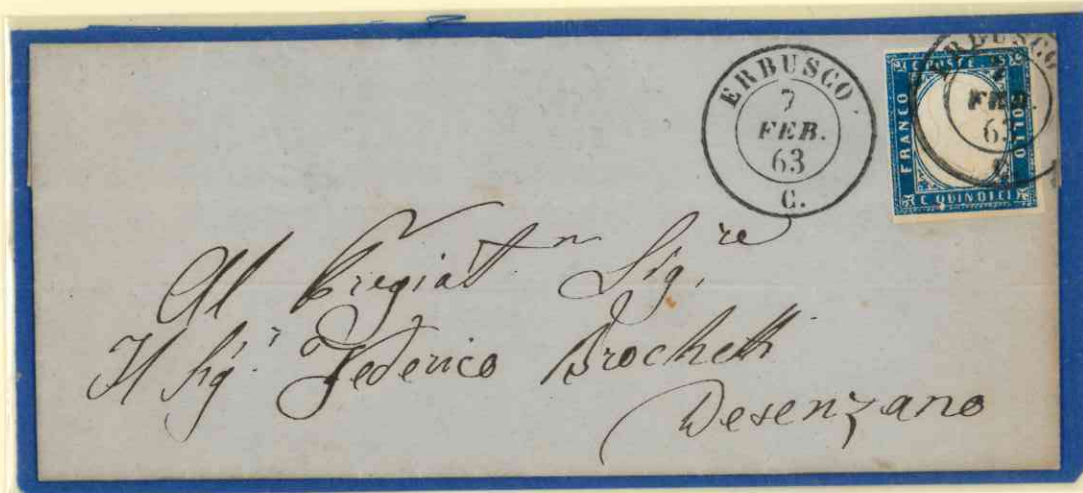 ERBUSCO
7
FEB.
63
C.
ERBUSCO
7
FEB.
63
C.
C POSTE 15
FRANCO
BOLLO
C QUINDICI 15
Al Pregiat^mo Sig.^re
Il Sig.^r Federico Brochetti
Desenzano